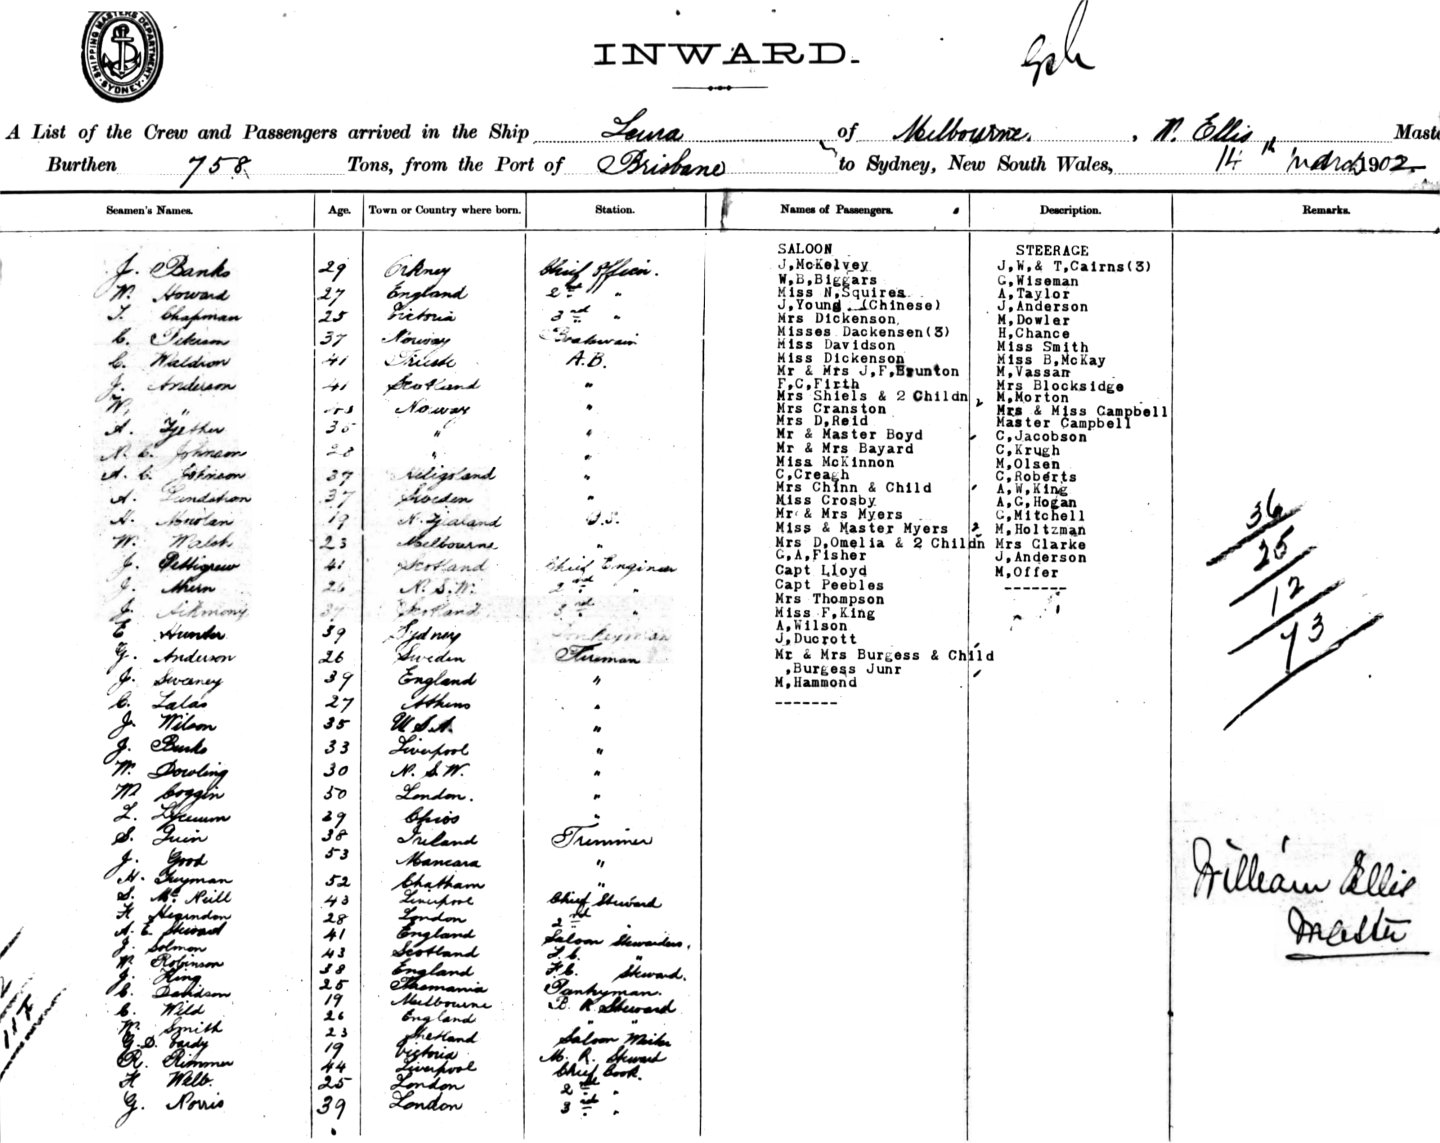 SHIPPING MASTERS DEPARTMENT SYDNEY
INWARD.
A List of the Crew and Passengers arrived in the Ship Leura of Melbourne. , W. Ellis, Maste
Burthen 758 Tons, from the Port of Brisbane to Sydney, New South Wales, 14th March 1902
Seamen's Names. Age. Town or Country where born. Station. Names of Passengers. Description. Remarks.
J. Banks 29 Orkney Chief Officer.
W. Howard 27 England 2nd "
T. Chapman 25 Victoria 3rd "
C. 37 Norway
C. Waldron 41 Trieste A.B.
J. Anderson 41 Scotland "
W. " Norway "
A. 35 " "
N. C. Johnson 28 " "
A. C. Johnson 37 Heligoland "
A. 37 Sweden "
H. 19 N. Zealand O.S.
W. Walsh 23 Melbourne "
J. Pettigrew 41 Scotland Chief Engineer
J. Ahern 26 N.S.W. 2nd "
J. 37 Scotland 3rd "
E. Hunter 39 Sydney Donkeyman
G. Anderson 26 Sweden Fireman
J. Sweeney 39 England "
C. Lalas 27 Athens "
J. Wilson 35 U.S.A. "
J. Burke 33 Liverpool "
W. Dowling 30 N.S.W. "
W. Coggin 50 London. "
L. 29 Chios "
S. Quin 38 Ireland Trimmer
J. Good 53 "
H. Guyman 52 Chatham "
S. McNeill 43 Liverpool Chief Steward
H. Hearndon 28 London 2nd "
A. E. Steward 41 England Saloon Stewardess.
J. Solmon 43 Scotland "
W. Robinson 38 England F.C. Steward.
J. King 25 Pantryman.
C. Davidson 19 Melbourne B. R. Steward
C. Wild 26 England " "
W. Smith 23 Shetland Saloon Waiter
G. D. Vardy 19 Victoria M. R. Steward
R. Rimmer 44 Liverpool Chief Cook.
H. Webb. 25 London 2nd "
G. Norris 39 London 3rd "
SALOON
J,McKelvey
W,B,Biggars
Miss N,Squires
J,Young (Chinese)
Mrs Dickenson
Misses Dackensen(3)
Miss Davidson
Miss Dickenson
Mr & Mrs J,F,Brunton
F,C,Firth
Mrs Shiels & 2 Childn
Mrs Cranston
Mrs D,Reid
Mr & Master Boyd
Mr & Mrs Bayard
Miss McKinnon
C,Creagh
Mrs Chinn & Child
Miss Crosby
Mr & Mrs Myers
Miss & Master Myers
Mrs D,Omelia & 2 Childn
G,A,Fisher
Capt Lloyd
Capt Peebles
Mrs Thompson
Miss F,King
A,Wilson
J,Ducrott
Mr & Mrs Burgess & Child
,Burgess Junr
M,Hammond
-------
STEERAGE
J,W,& T,Cairns(3)
G,Wiseman
A,Taylor
J,Anderson
M,Dowler
H,Chance
Miss Smith
Miss B,McKay
M,Vassar
Mrs Blocksidge
M,Morton
Mrs & Miss Campbell
Master Campbell
C,Jacobson
C,Krugh
M,Olsen
C,Roberts
A,W,King
A,G,Hogan
G,Mitchell
M,Holtzman
Mrs Clarke
J,Anderson
M,Offer
-------
36
25
12
73
William Ellis
Master